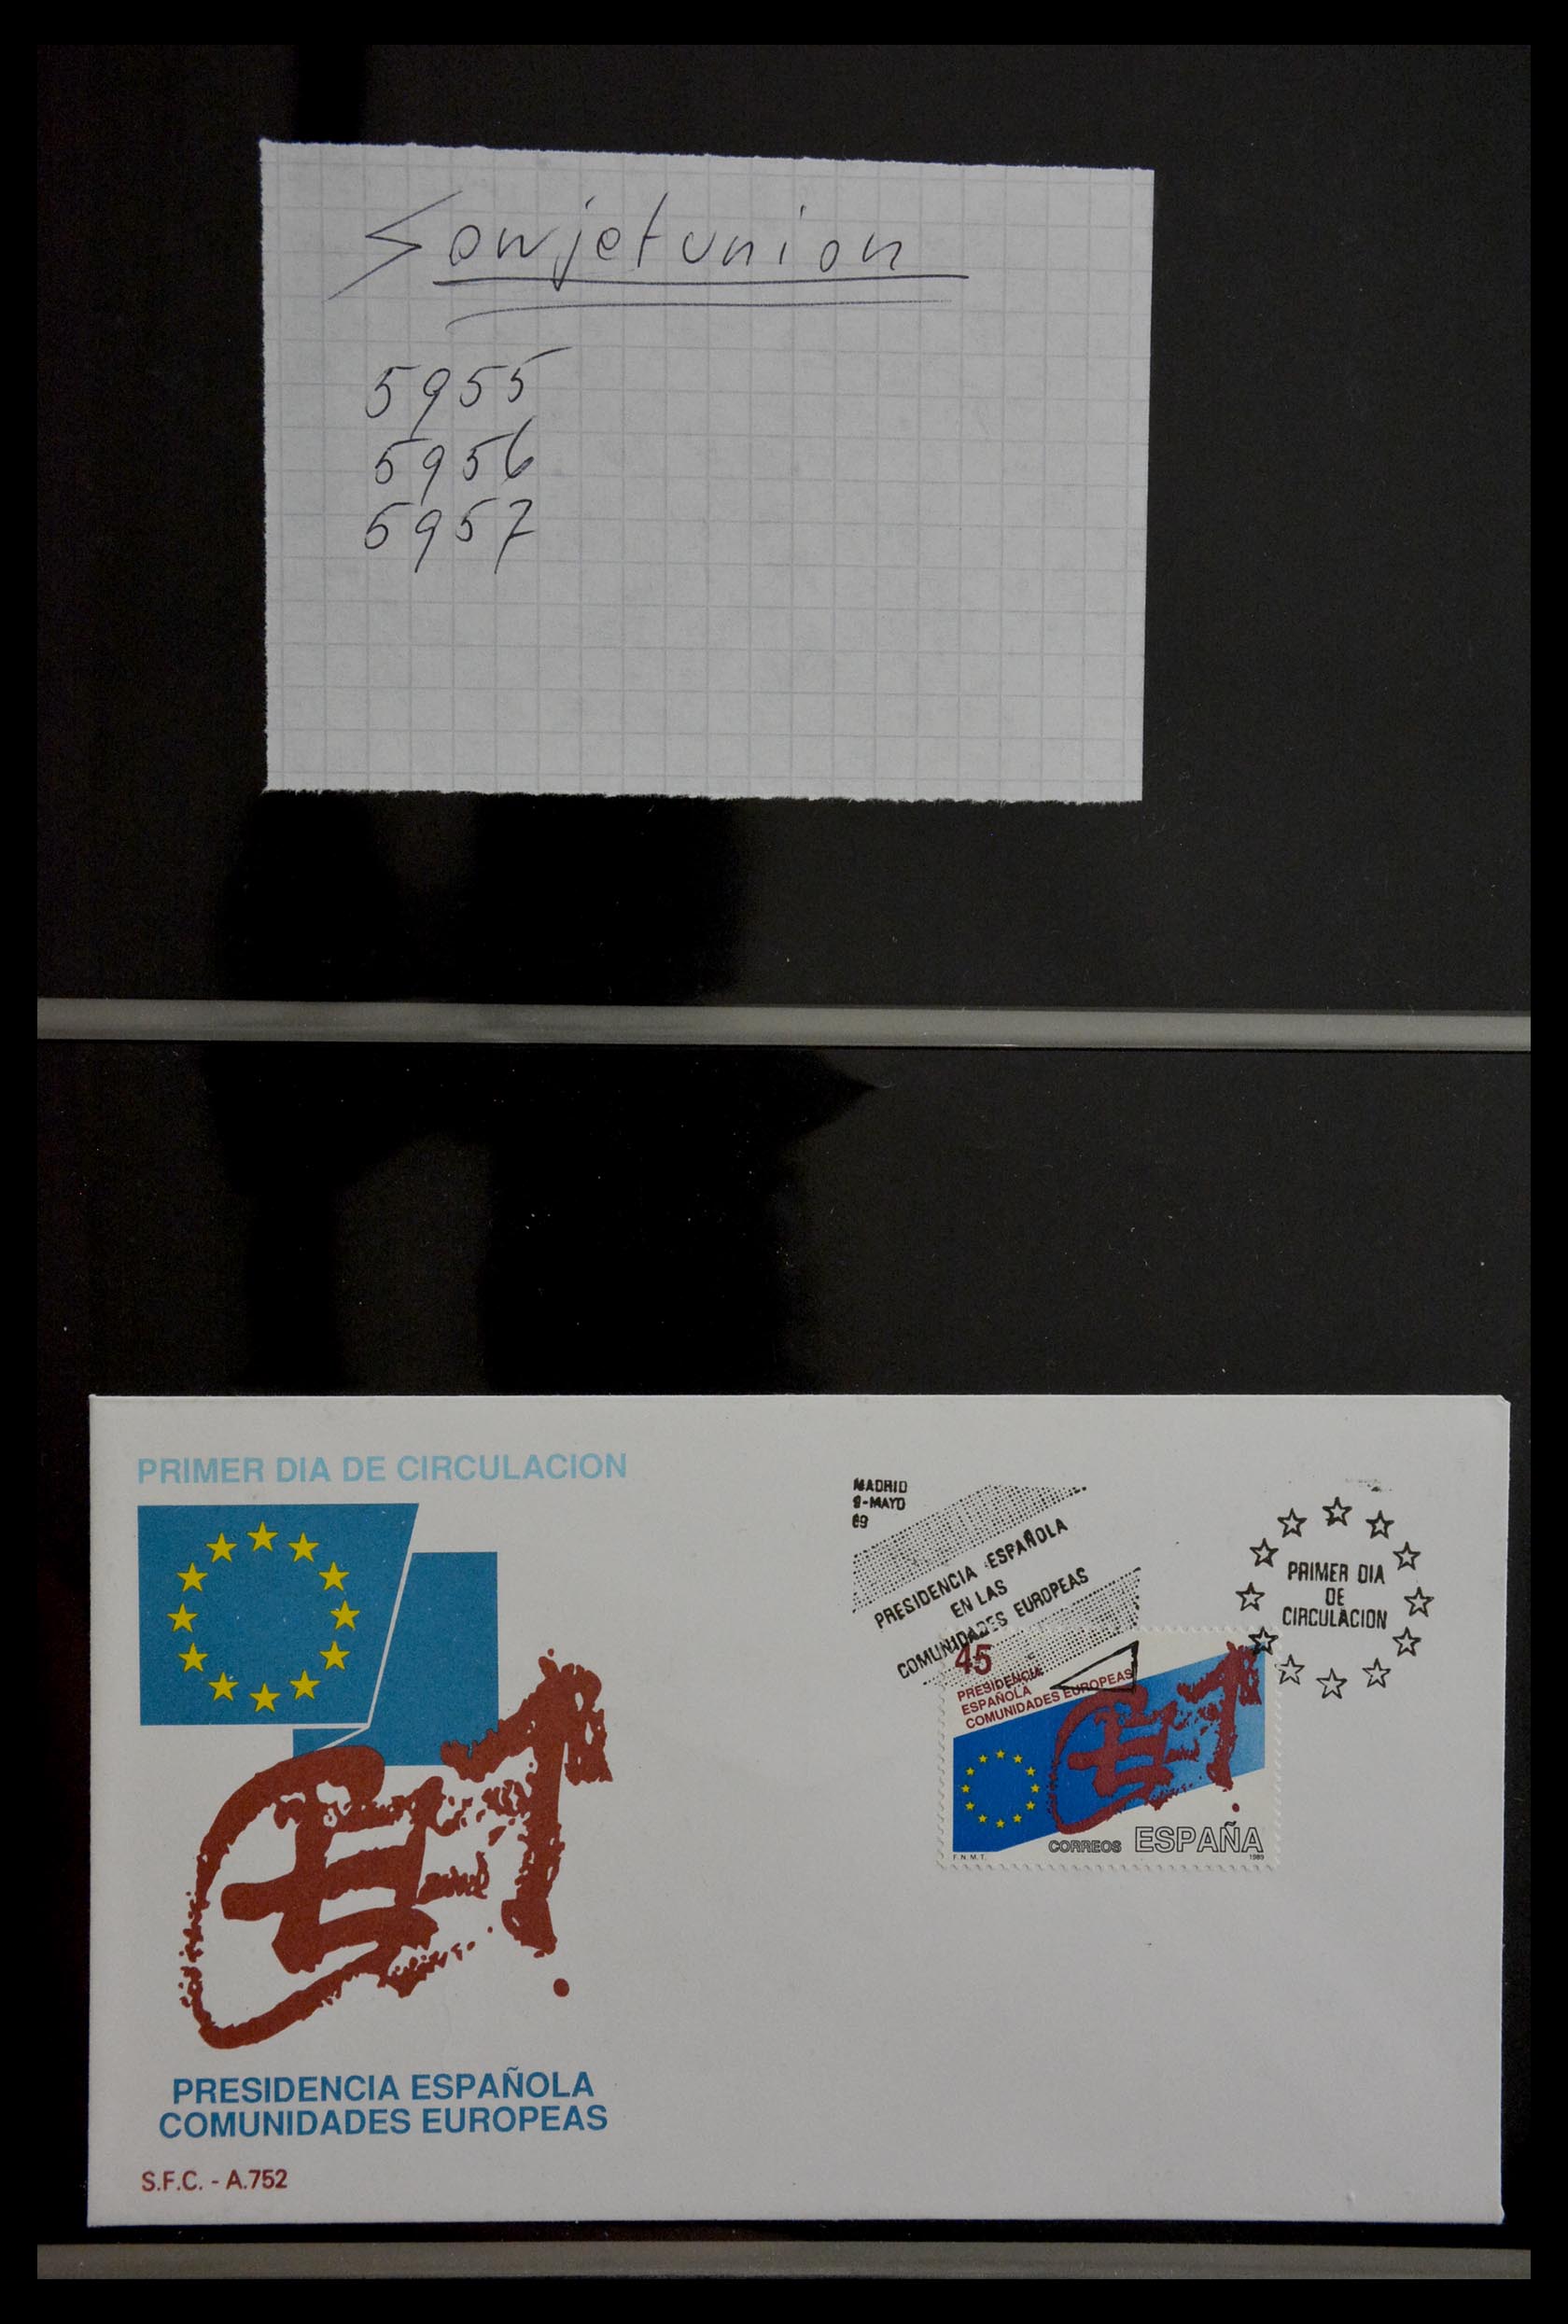 Sowjetunion
5955
5956
5957
PRIMER DIA DE CIRCULACION
PRESIDENCIA ESPAÑOLA
COMUNIDADES EUROPEAS
S.F.C. - A.752
MADRID
9-MAYO
89
PRESIDENCIA ESPAÑOLA
EN LAS
COMUNIDADES EUROPEAS
PRIMER DIA
DE
CIRCULACION
45
PRESIDENCIA
ESPAÑOLA
COMUNIDADES EUROPEAS
CORREOS ESPAÑA
F.N.M.T. 1989